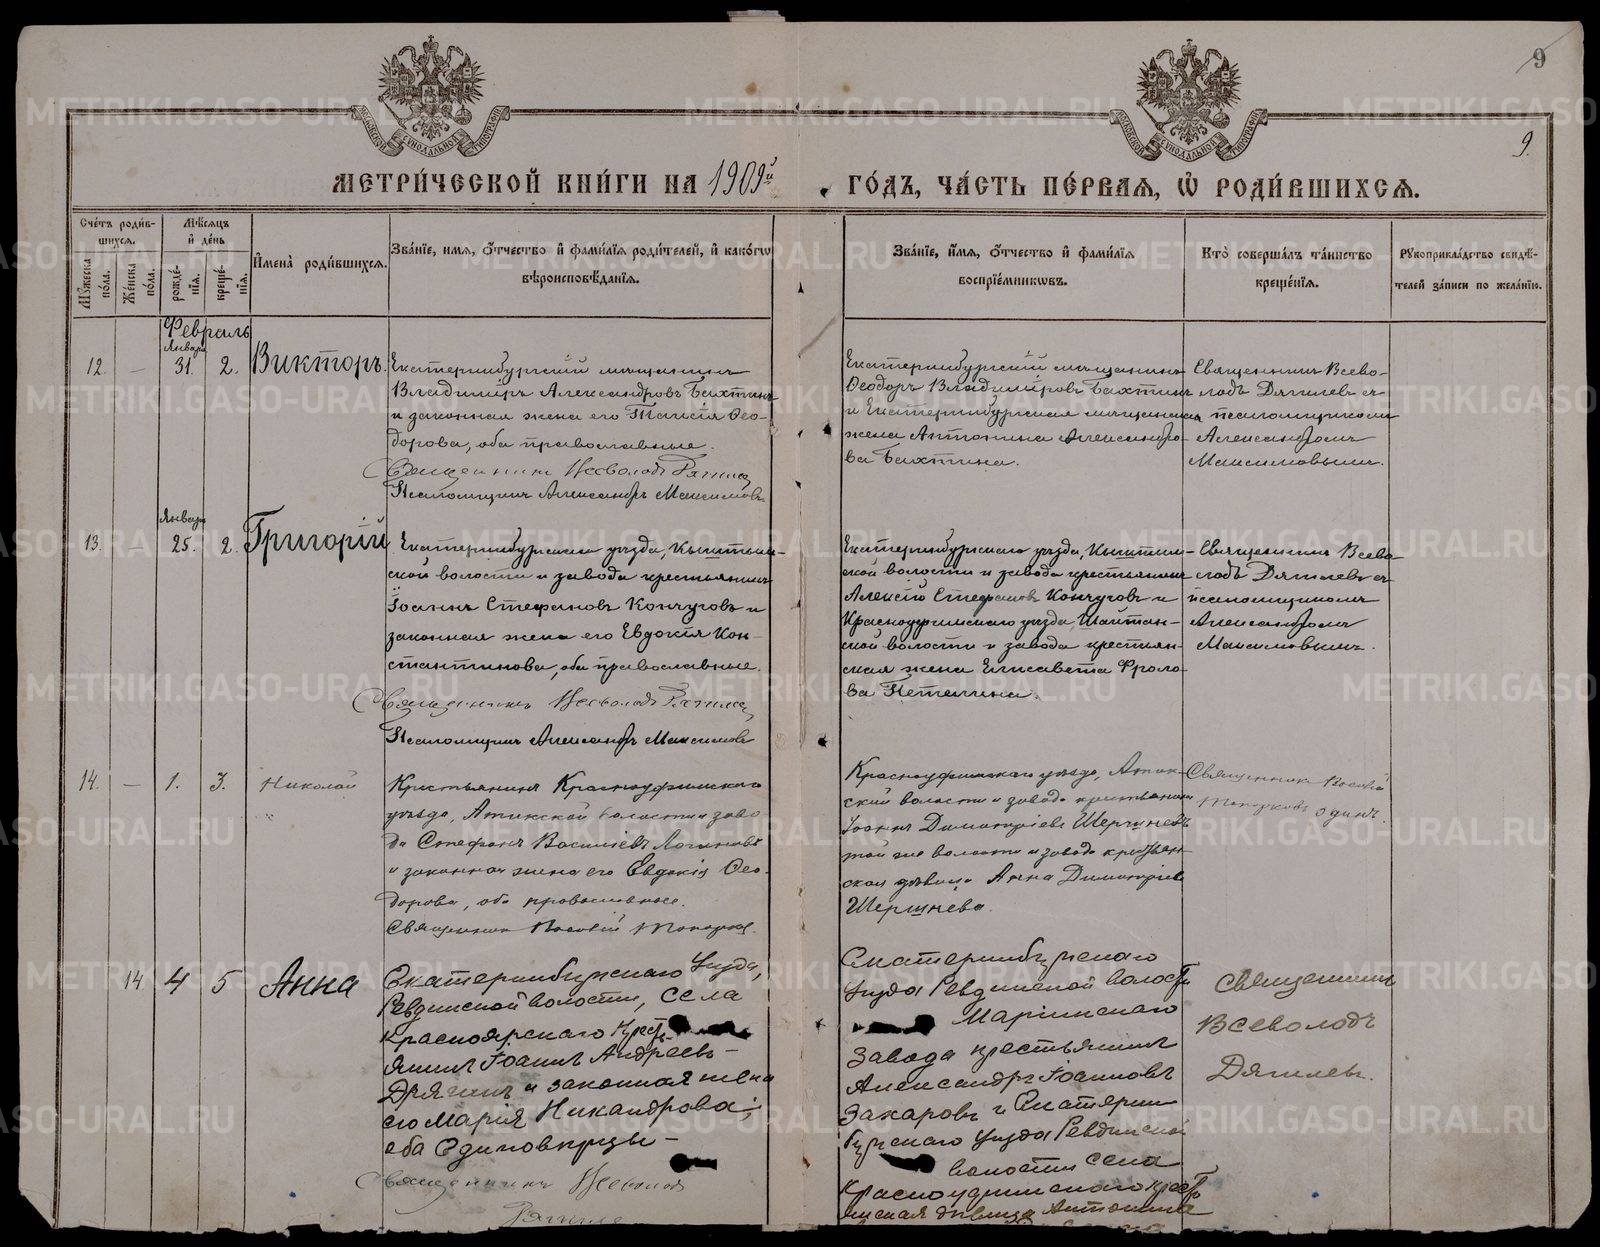 9
9.
МЕТРИ́ЧЕСКОЙ КНИ́ГИ НА 1909й ГО́ДЪ, ЧА́СТЬ ПЕ́РВАЯ, Ѡ РОДИ́ВШИХСѦ.
Сче́тъ роди́в-
шихсѧ.
Мꙋ́жеска по́ла.
Же́нска по́ла.
Мѣ́сѧцъ
и҆ де́нь
рожде́-
нїѧ.
креще́-
нїѧ.
И҆мена̀ роди́вшихсѧ.
Зва́нїе, имѧ, ѻ҆́тчество и҆ фами́лїѧ роди́телей, и҆ како́гѡ
вѣроисповѣ́данїѧ.
Зва́нїе, и҆́мѧ, ѻ҆́тчество и҆ фами́лїѧ
воспрїе́мникѡвъ.
Кто̀ соверша́лъ та́инство
креще́нїѧ.
Рꙋкоприкла́дство свидѣ́-
телей за́писи по жела́нїю.
Февраль
Января
12. — 31. 2. Викторъ.
Екатеринбургскій мѣщанинъ
Владиміръ Александровъ Бахтинъ
и законная жена его Таисія Ѳео-
дорова, оба православные.
Священникъ Всеволодъ Дягилев
Псаломщикъ Александръ Максимовъ
Екатеринбургскій мѣщанинъ
Ѳеодоръ Владиміровъ Бахтинъ
и Екатеринбургская мѣщанская
жена Антонина Александро-
ва Бахтина.
Священникъ Всево-
лодъ Дягилевъ съ
псаломщикомъ
Александромъ
Максимовымъ.
Января
13. — 25. 2. Григорій
Екатеринбургскаго уѣзда, Кыштым-
ской волости и завода крестьянинъ
Іоаннъ Стефановъ Кончуговъ и
законная жена его Евдокія Кон-
стантинова, оба православные.
Священникъ Всеволодъ Дягилев
Псаломщикъ Александръ Максимовъ
Екатеринбургскаго уѣзда, Кыштым-
ской волости и завода крестьянинъ
Алексій Стефановъ Кончуговъ и
Красноуфимскаго уѣзда, Шайтан-
ской волости и завода крестьян-
ская жена Елисавета Фроло-
ва Петелина.
Священникъ Всево-
лодъ Дягилевъ съ
псаломщикомъ
Александромъ
Максимовымъ.
14. — 1. 3. Николай
Крестьянинъ Красноуфимскаго
уѣзда, Атигской волости и заво
да Стефанъ Василіевъ Логиновъ
и законная жена его Евдокія Ѳео-
дорова, оба православные.
Священник
Красноуфимскаго уѣзда, Атиг-
ской волости и завода крестьянинъ
Іоаннъ Димитріевъ Шершневъ
той же волости и завода крестьян-
ская дѣвица Анна Димитріева
Шершнева.
Священник
одинъ.
14 4 5 Анна
Екатеринбургскаго Уезда,
Ревдинской волости, села
Красноярскаго Кресть-
янинъ Іоаннъ Андреевъ-
Дрягинъ и законная жена
его Марія Никандрова;
оба Единоверцы-
Священникъ Всеволодъ
Дягиле
Екатеринбургскаго
Уезда Ревдинской волости
Маріинскаго
завода крестьянинъ
Александръ Іоанновъ
Захаровъ и Екатерин
бургскаго Уезда Ревдинской
волости села
крест
янская девица Антонина
Священникъ
Всеволодъ
Дягилевъ.
METRIKI.GASO-URAL.RU